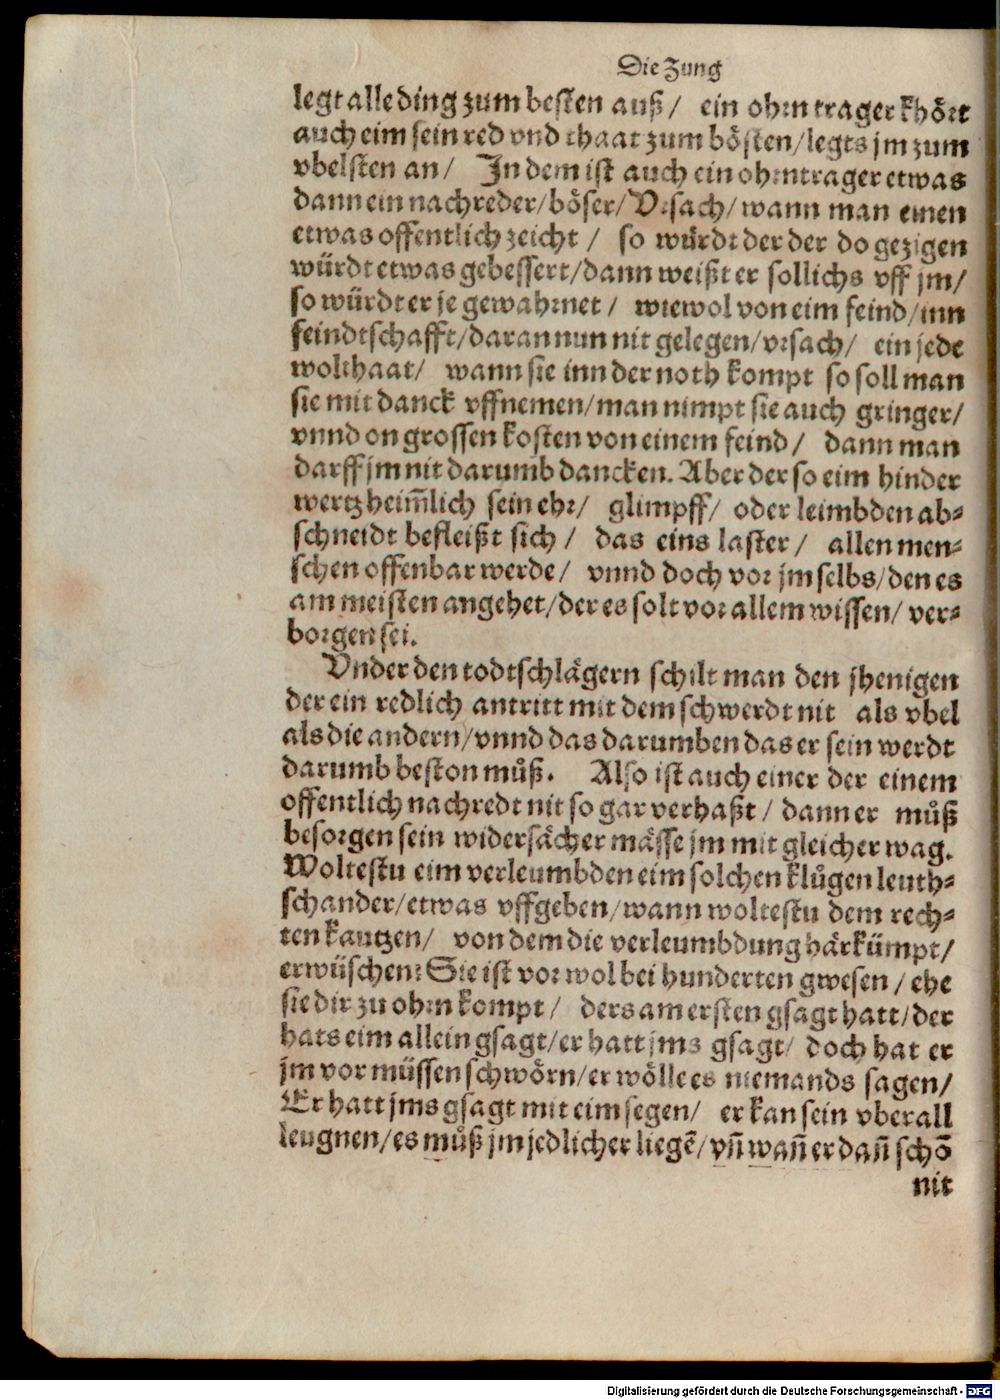 Die Zung
legt alle ding zum besten auß / ein ohrntrager khört
auch eim sein red vnd thaat zum bösten / legts jm zum
vbelsten an / In dem ist auch ein ohrntrager etwas
dann ein nachreder / böser / Vrsach / wann man einen
etwas offentlich zeicht / so würdt der der do gezigen
würdt etwas gebessert / dann weißt er sollichs vff jm /
so würdt er je gewahrnet / wiewol von eim feind / inn
feindtschafft / daran nun nit gelegen / vrsach / ein jede
wolthaat / wann sie inn der noth kompt so soll man
sie mit danck vffnemen / man nimpt sie auch gringer /
vnnd on grossen kosten von einem feind / dann man
darff jm nit darumb dancken. Aber der so eim hinder
wertz heim̃lich sein ehr / glimpff / oder leimbden ab⸗
schneidt befleißt sich / das eins laster / allen men⸗
schen offenbar werde / vnnd doch vor jm selbs / den es
am meisten angehet / der es solt vor allem wissen / ver⸗
borgen sei.
Vnder den todtschlägern schilt man den jhenigen
der ein redlich antritt mit dem schwerdt nit als vbel
als die andern / vnnd das darumben das er sein werdt
darumb beston můß. Also ist auch einer der einem
offentlich nachredt nit so gar verhaßt / dann er můß
besorgen sein widersächer mässe jm mit gleicher wag.
Woltestu eim verleumbden eim solchen klůgen leuth⸗
schander / etwas vffgeben / wann woltestu dem rech⸗
ten kautzen / von dem die verleumbdung härkümpt /
erwüschen? Sie ist vor wol bei hunderten gwesen / ehe
sie dir zu ohrn kompt / ders am ersten gsagt hatt / der
hats eim allein gsagt / er hatt jms gsagt / doch hat er
jm vor müssen schwörn / er wölle es niemands sagen /
Er hatt jms gsagt mit eim segen / er kan sein vberall
leugnen / es můß jm jedlicher liegẽ / vñ wañ er dañ schõ
nit
Digitalisierung gefördert durch die Deutsche Forschungsgemeinschaft - DFG